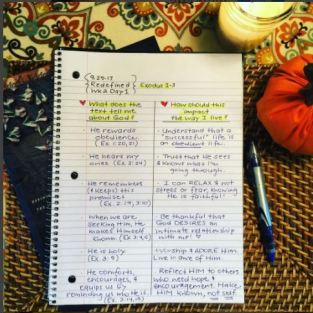 9.29.17
Redefined
Wk 2 Day 1
Exodus 1-3
What does the
text tell me
about God?
He rewards
obedience.
(Ex. 1:20, 21)
He hears my
cries (Ex 2:24)
He remembers
& keeps his
promises
(Ex. 2:24, 3:10)
When we are
seeking Him, He
makes Himself
known (Ex 3:4,6)
He is holy
(Ex 3:5)
He comforts,
encourages, &
equips us by
reminding us who He is.
How should this
impact
the way I live?
- Understand that a
"successful" life is
an obedient life.
- Trust that He sees
& knows what I'm
going through.
- I can RELAX & not
stress or fear, knowing
He is faithful!
- Be thankful that
God DESIRES an
intimate relationship
with me!
- Worship & ADORE Him
Live in awe of Him.
- Reflect HIM to others
who need hope &
encouragement. Make
HIM known, not self.